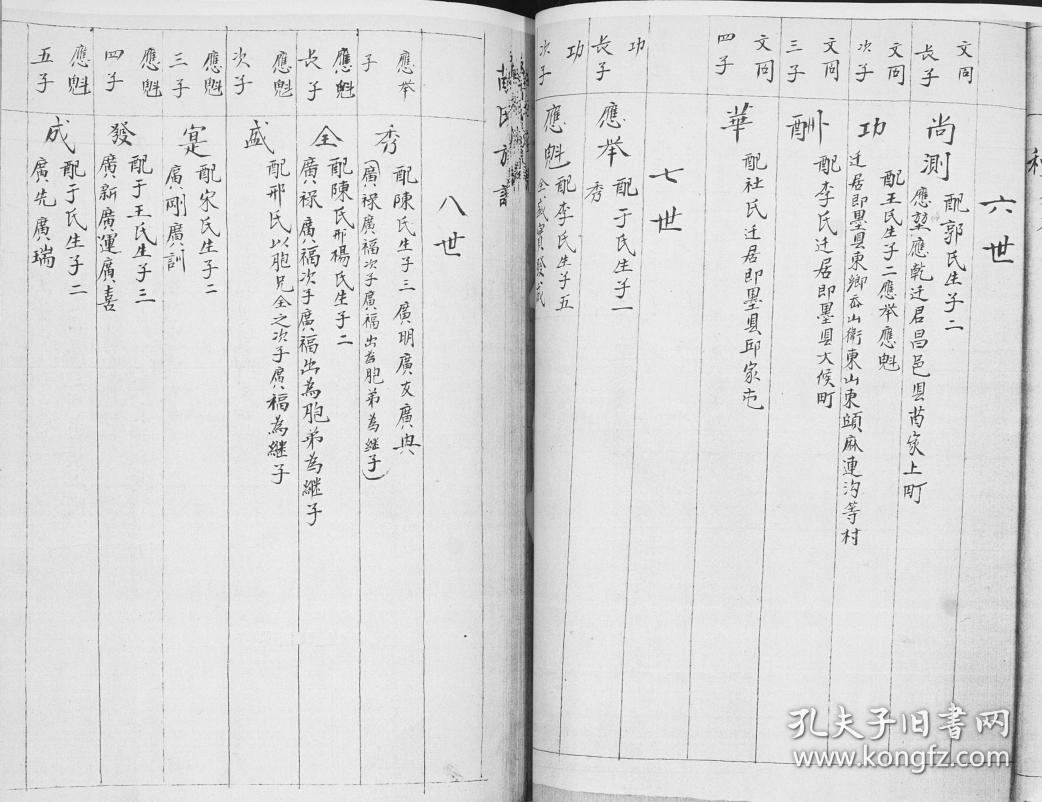 六世
文同
長子
尚測
配郭氏生子二
應堃應乾迁居昌邑县苗家上町
文同
次子
功
配王氏生子二應举應魁
迁居即墨县東鄉岙山衛東山東頭麻連沟等村
文同
三子
酬
配李氏迁居即墨县大候町
文同
四子
華
配社氏迁居即墨县邱家屯
七世
功
長子
應举
配于氏生子一
秀
功
次子
應魁
配李氏生子五
全盛寔發成
氏族譜
八世
應举
子
秀
配陳氏生子三廣明廣友廣典
(廣禄廣福次子廣福出為胞弟為继子)
應魁
長子
全
配陳氏邢楊氏生子二
廣禄廣福次子廣福出為胞弟為継子
應魁
次子
盛
配邢氏以胞兄全之次子廣福為継子
應魁
三子
寔
配宋氏生子二
廣剛廣訓
應魁
四子
發
配于王氏生子三
廣新廣運廣喜
應魁
五子
成
配于氏生子二
廣先廣瑞
孔夫子旧书网
www.kongfz.com